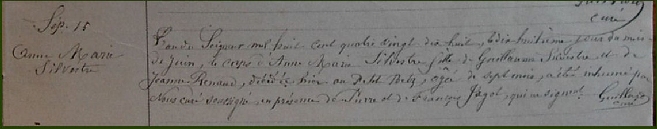 curé
Sép. 15
Anne Marie
Silvestre
L'an du Seigneur mil huit cent quatre vingt dix huit, le dix huitième jour du mois
de Juin, le corps d'Anne Marie Silvestre fille de Guillaume Silvestre et de
Jeanne Renaud, décédée hier au Petit Betz, agée de sept mois, a été inhumé par
Nous curé soussigné, en présence de Pierre et de François Jagot, qui ne signent.
curé